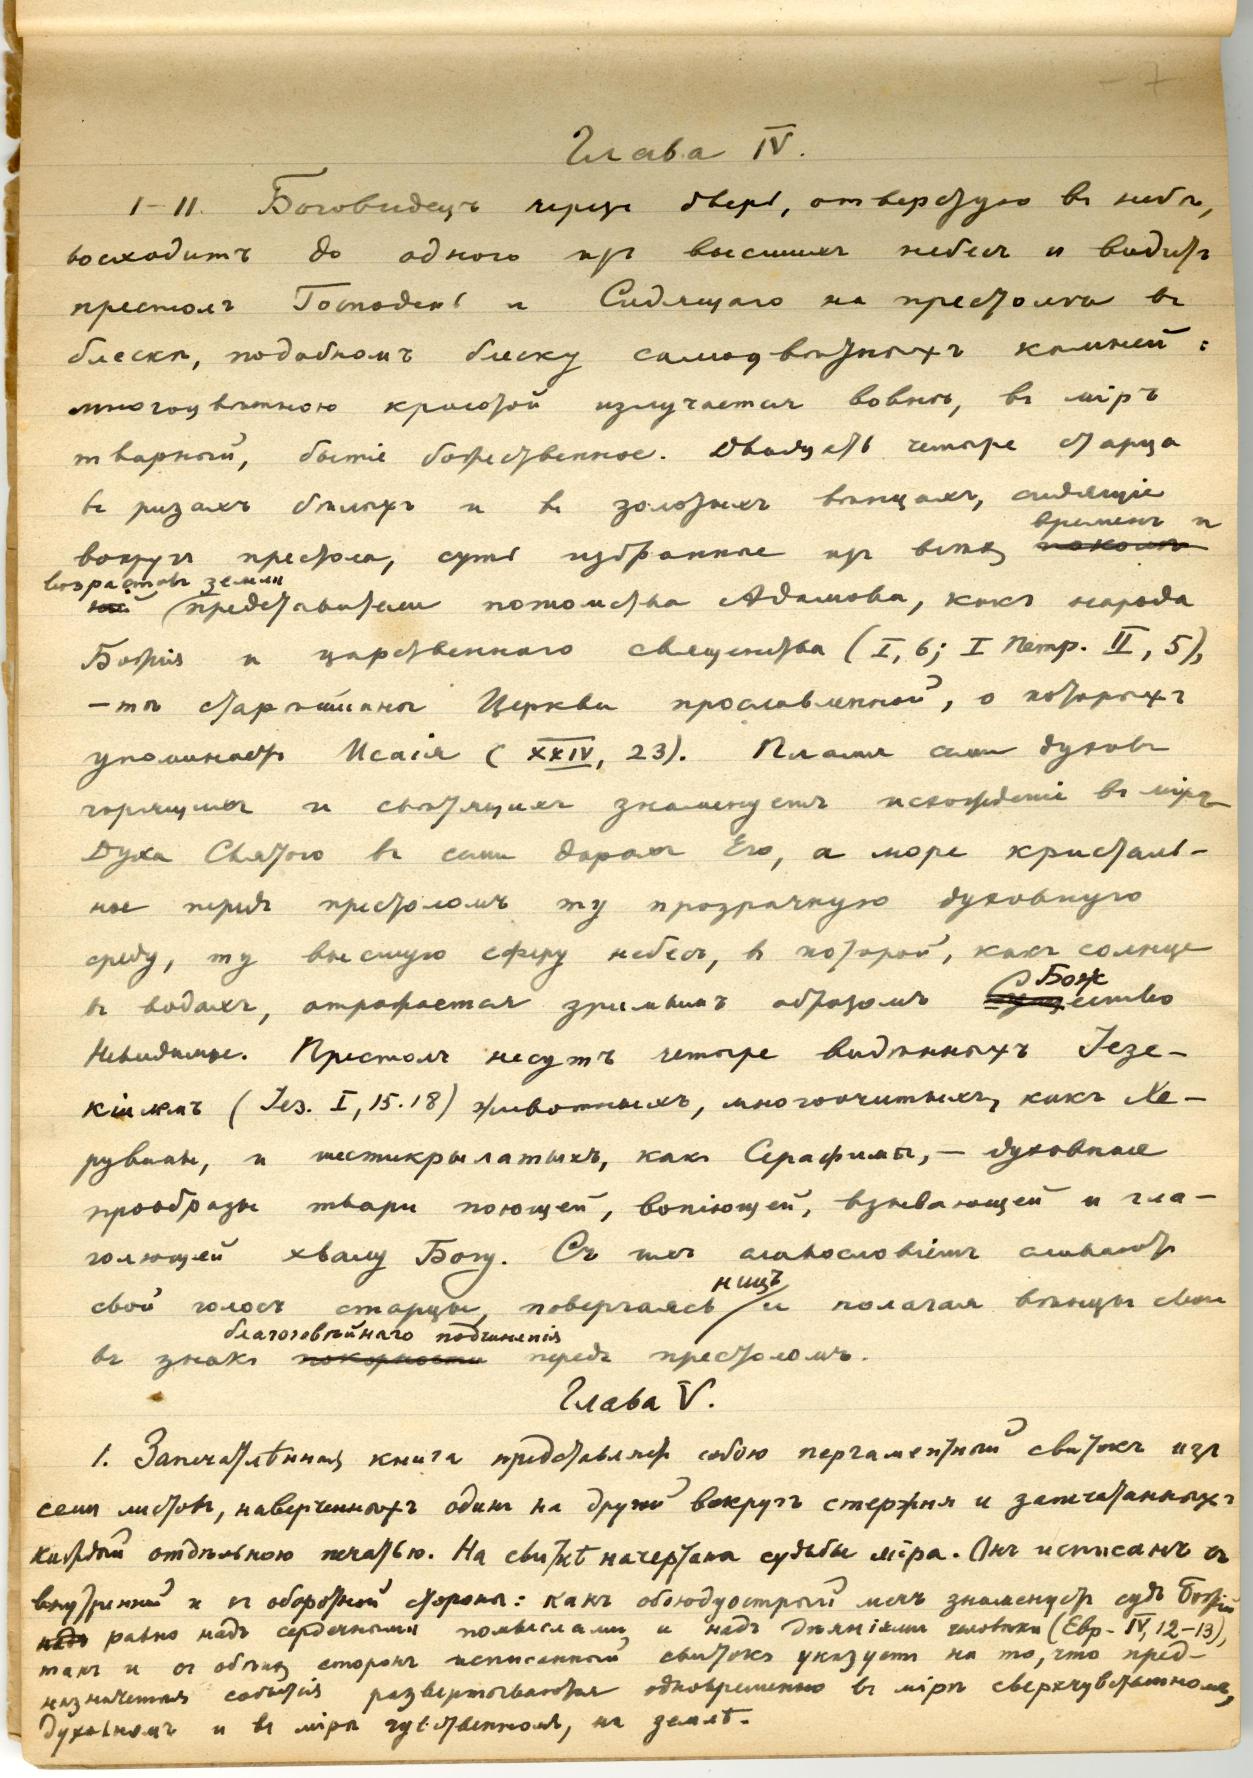 — 7
Глава IV.
1–11. Боговидецъ черезъ дверь, отверстую въ небѣ,
восходитъ до одного изъ высшихъ небесъ и видитъ
престолъ Господень и Сидящаго на престолѣ въ
блескѣ, подобномъ блеску самоцвѣтныхъ камней:
многоцвѣтною красотой излучается вовнѣ, въ міръ
тварный, бытіе божественное. Двадцать четыре старца
въ ризахъ бѣлыхъ и въ золотыхъ вѣнцахъ, сидящіе
временъ и
вокругъ престола, суть избранные изъ всѣхъ
возрастовъ земли
представители потомства Адамова, какъ народа
Божія и царственнаго священства (I, 6; I Петр. II, 5),
—тѣ старѣйшины Церкви прославленной, о которыхъ
упоминаетъ Исаія (XXIV, 23). Пламя семи духовъ
горящихъ и свѣтящихъ знаменуетъ исхожденіе въ міръ
Духа Святого въ семи дарахъ Его, а море кристаль-
ное передъ престоломъ ту прозрачную духовную
среду, ту высшую сферу небесъ, въ которой, какъ солнце
Бож
въ водахъ, отражается зримымъ образомъ ество
Невидимое. Престолъ несутъ четыре видѣнныхъ Іезе-
кіилемъ (Іез. I, 15.18) животныхъ, многоочитыхъ, какъ Хе-
рувимы, и шестикрылатыхъ, какъ Серафимы, — духовные
прообразы твари поющей, вопіющей, взывающей и гла-
голющей хвалу Богу. Съ ихъ славословіемъ сливаютъ
ницъ
свой голосъ старцы, повергаясь и полагая вѣнцы свои
благоговѣйнаго подчиненія
въ знакъ покорности передъ престоломъ.
Глава V.
1. Запечатлѣнная книга представляетъ собою пергаментный свитокъ изъ
семи листовъ, наверченныхъ одинъ на другой вокругъ стержня и запечатанныхъ
каждый отдѣльною печатью. На свиткѣ начертана судьбы міра. Онъ исписанъ съ
внутренней и съ оборотной стороны: какъ обоюдуострый мечъ знаменуетъ судъ Божій
надъ равно надъ сердечными помыслами и надъ дѣяніями человѣка (Евр. IV, 12–13),
такъ и съ обѣихъ сторонъ исписанный свитокъ указуетъ на то, что пред-
назначенныя событія развертываются одновременно въ мірѣ сверхчувственномъ,
духовномъ и въ мірѣ чувственномъ, на землѣ.